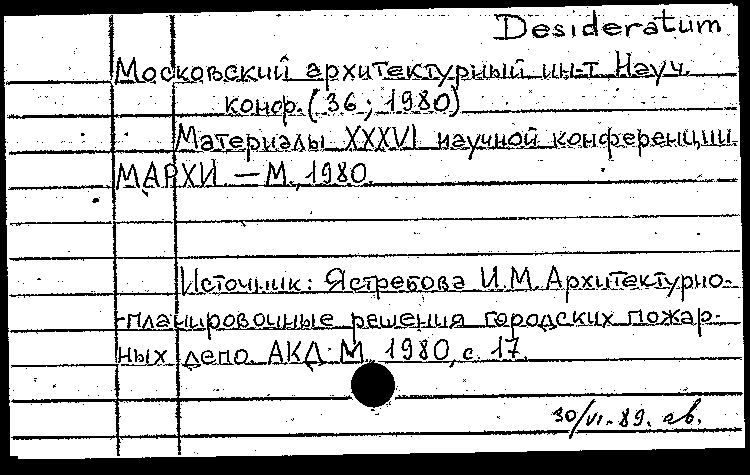 Desideratum
Московский архитектурный ин-т. Науч.
конф. (36; 1980)
Материалы XXXVI научной конференции
МАРХИ. — М., 1980.
Источник: Ястребова И.М. Архитектурно-
-планировочные решения городских пожар-
ных депо. АКД. М. 1980, с. 17.
30/VI-89. ав.